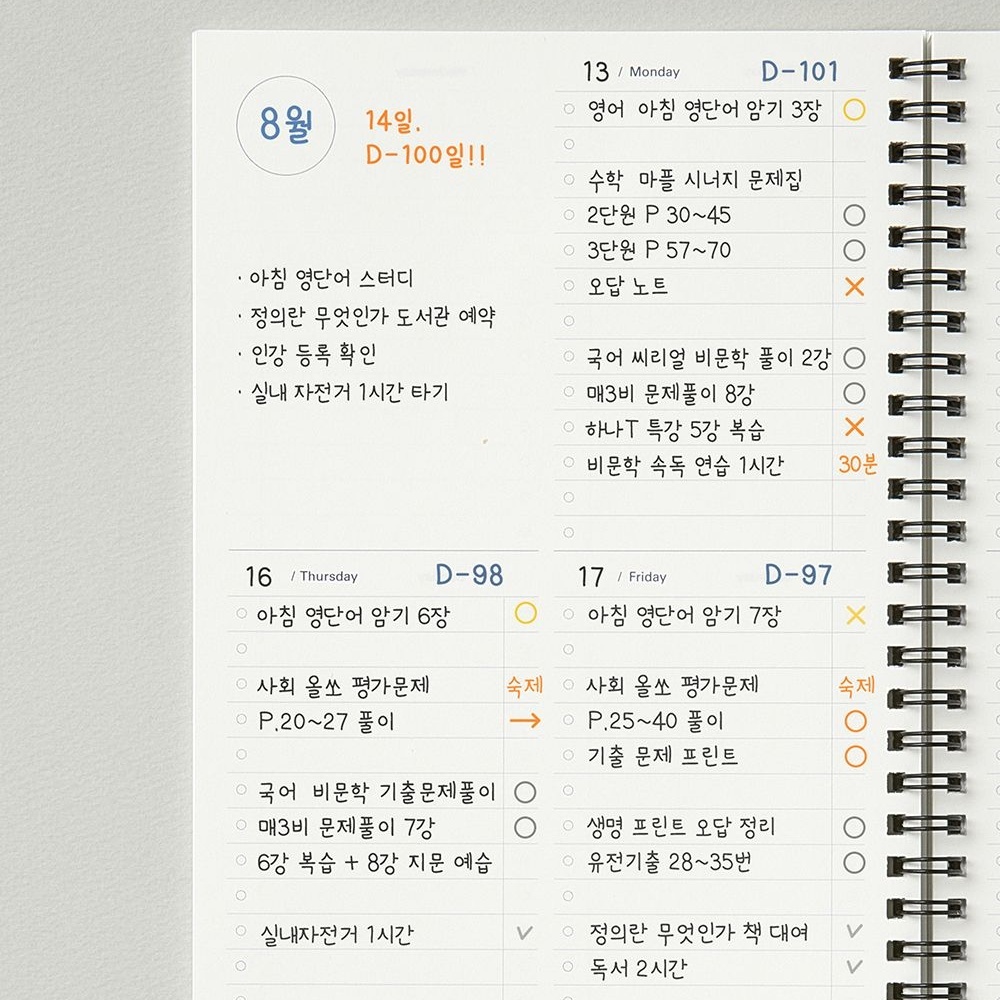 8월
14일.
D-100일!!
· 아침 영단어 스터디
· 정의란 무엇인가 도서관 예약
· 인강 등록 확인
· 실내 자전거 1시간 타기
13 / Monday D-101
영어 아침 영단어 암기 3장 ○
수학 마플 시너지 문제집
2단원 P 30~45 ○
3단원 P 57~70 ○
오답 노트 ×
국어 씨리얼 비문학 풀이 2강 ○
매3비 문제풀이 8강 ○
하나T 특강 5강 복습 ×
비문학 속독 연습 1시간 30분
16 / Thursday D-98
아침 영단어 암기 6장 ○
사회 올쏘 평가문제 숙제
P.20~27 풀이 →
국어 비문학 기출문제풀이 ○
매3비 문제풀이 7강 ○
6강 복습 + 8강 지문 예습
실내자전거 1시간 ✓
17 / Friday D-97
아침 영단어 암기 7장 ×
사회 올쏘 평가문제 숙제
P.25~40 풀이 ○
기출 문제 프린트 ○
생명 프린트 오답 정리 ○
유전기출 28~35번 ○
정의란 무엇인가 책 대여 ✓
독서 2시간 ✓